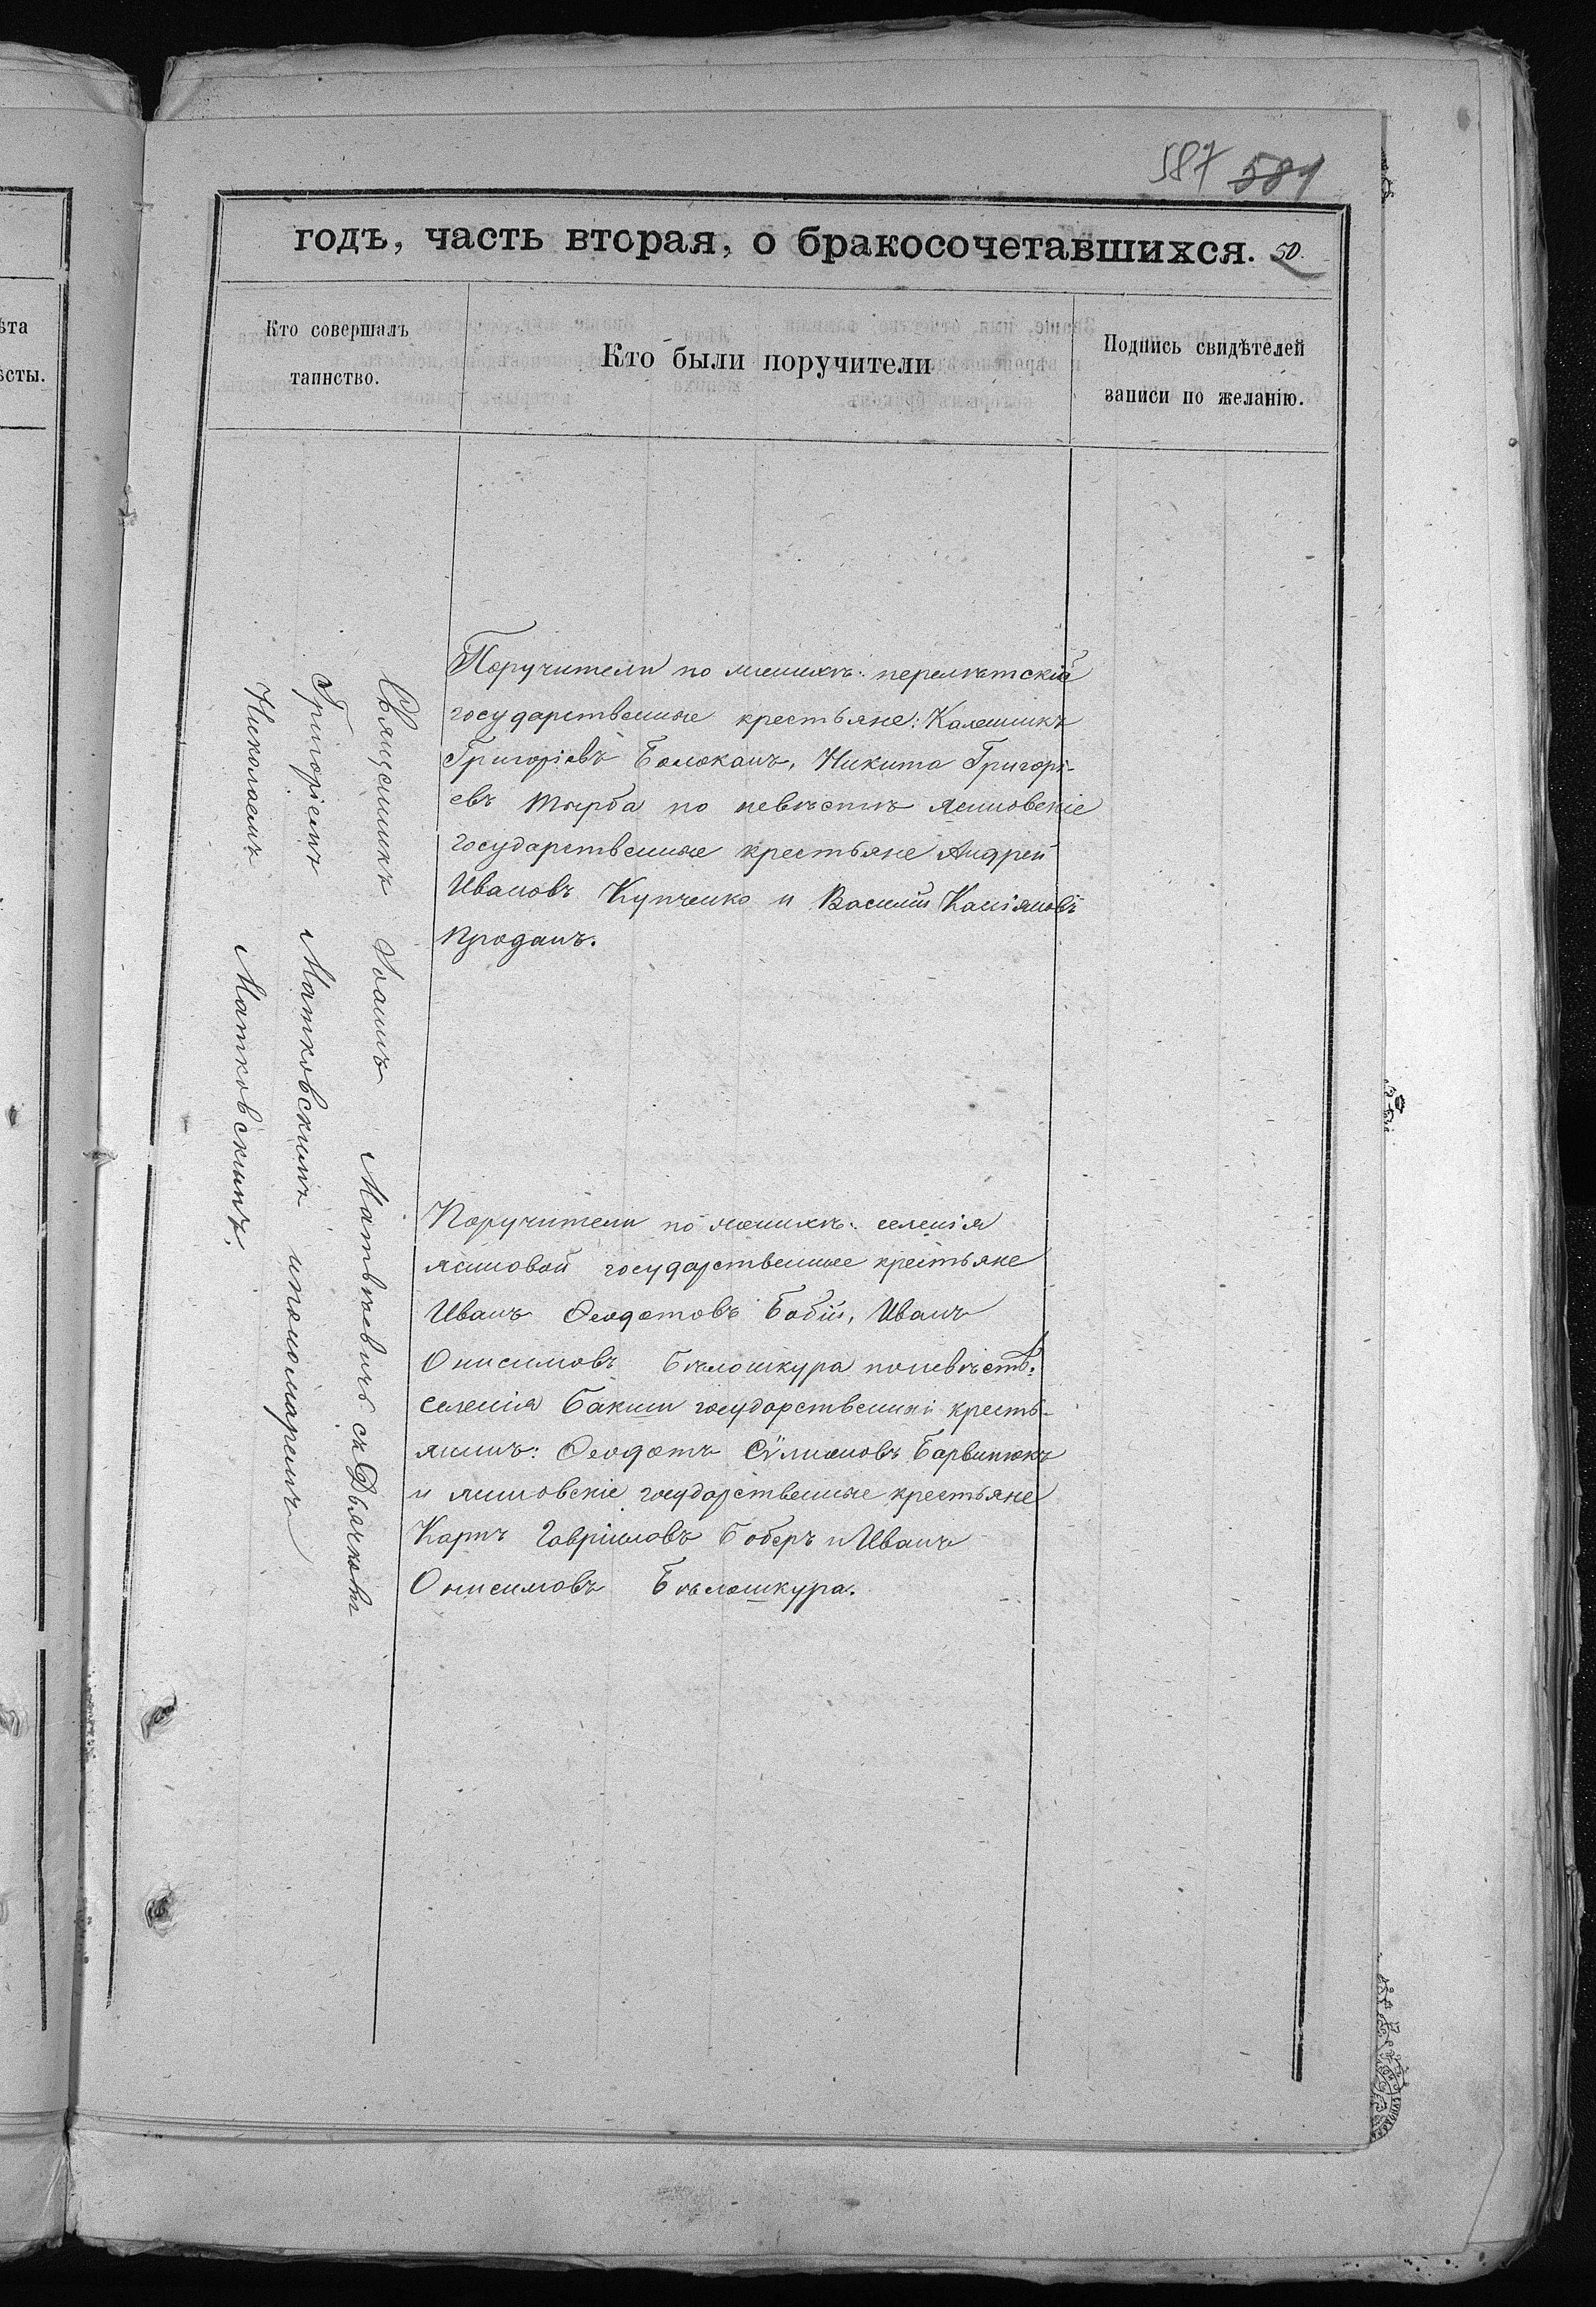 587 581
годъ, часть вторая, о бракосочетавшихся. 50.
ѣта
ѣсты.
Кто совершалъ
таинство.
Кто были поручители
Подпись свидѣтелей
записи по желанію.
Священникъ Іоаннъ Матвѣевичъ съ Дьячкомъ
Григоріемъ Матковскимъ и пономаремъ
Николаемъ Матковскимъ.
Поручители по женихѣ: перелетскіе
государственные крестьяне: Каленикъ
Григоріевъ Болоканъ, Никита Григорі-
евъ Тырба по невѣстѣ ясиновскіе
государственные крестьяне Андрей
Ивановъ Купченко и Василій Касіяновъ
Проданъ.
Поручители по женихѣ: селенія
ясиновой государственные крестьяне
Иванъ Ѳеодотовъ Бабій, Иванъ
Онисимовъ Бѣлошкура по невѣстѣ:
селенія Бакши государственный кресть-
янинъ: Ѳеодотъ Барвинокъ
и ясиновскіе государственные крестьяне
Карпъ Гавріиловъ Боберъ и Иванъ
Онисимовъ Бѣлошкура.